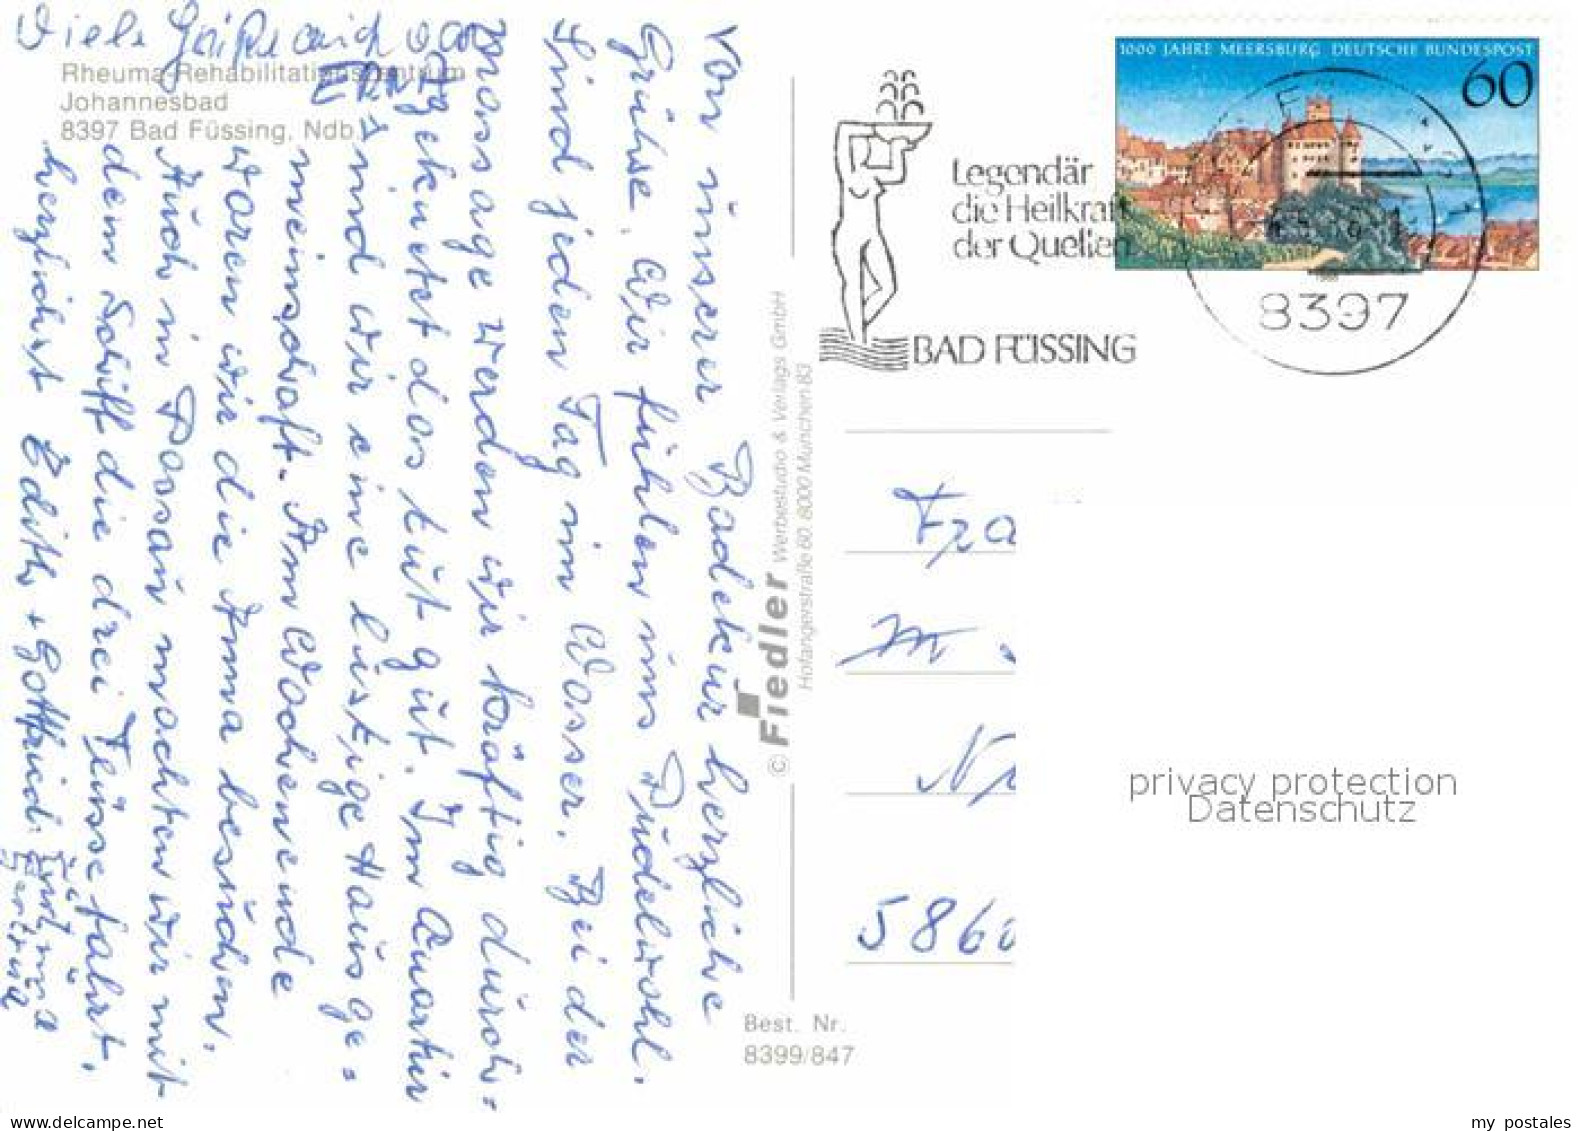 Viele Grüße auch
Rheuma-Rehabilitationszentrum
Johannesbad
8397 Bad Füssing, Ndb.
Von unserer Badekur herzliche
Grühse. Wir fühlen uns Pudelwohl.
Sind jeden Tag im Wasser. Bei der
Massage werden wir kräftig durch-
geknetet das tut gut. Im Quartir
sind wir eine lustige Hausge-
meinschaft. Am Wochenende
waren wir die Anna besuchen,
Auch in Passau machten wir mit
dem Schiff die drei Flüssefahrt.
herzlichst Edith + Gottfried
Gertrud
© Fiedler Werbestudio & Verlags GmbH
Hofangerstraße 60, 8000 München 83
Best. Nr.
8399/847
Legendär
die Heilkraft
der Quellen
BAD FÜSSING
1000 JAHRE MEERSBURG DEUTSCHE BUNDESPOST
60
8397
5860
privacy protection
Datenschutz
my postales